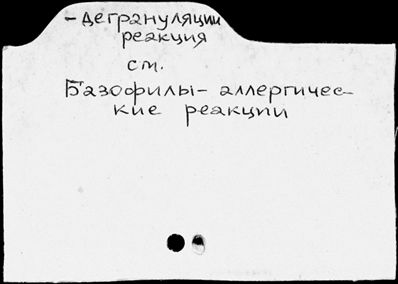 - Дегрануляции
реакция
см.
Базофилы - аллергичес-
кие реакции